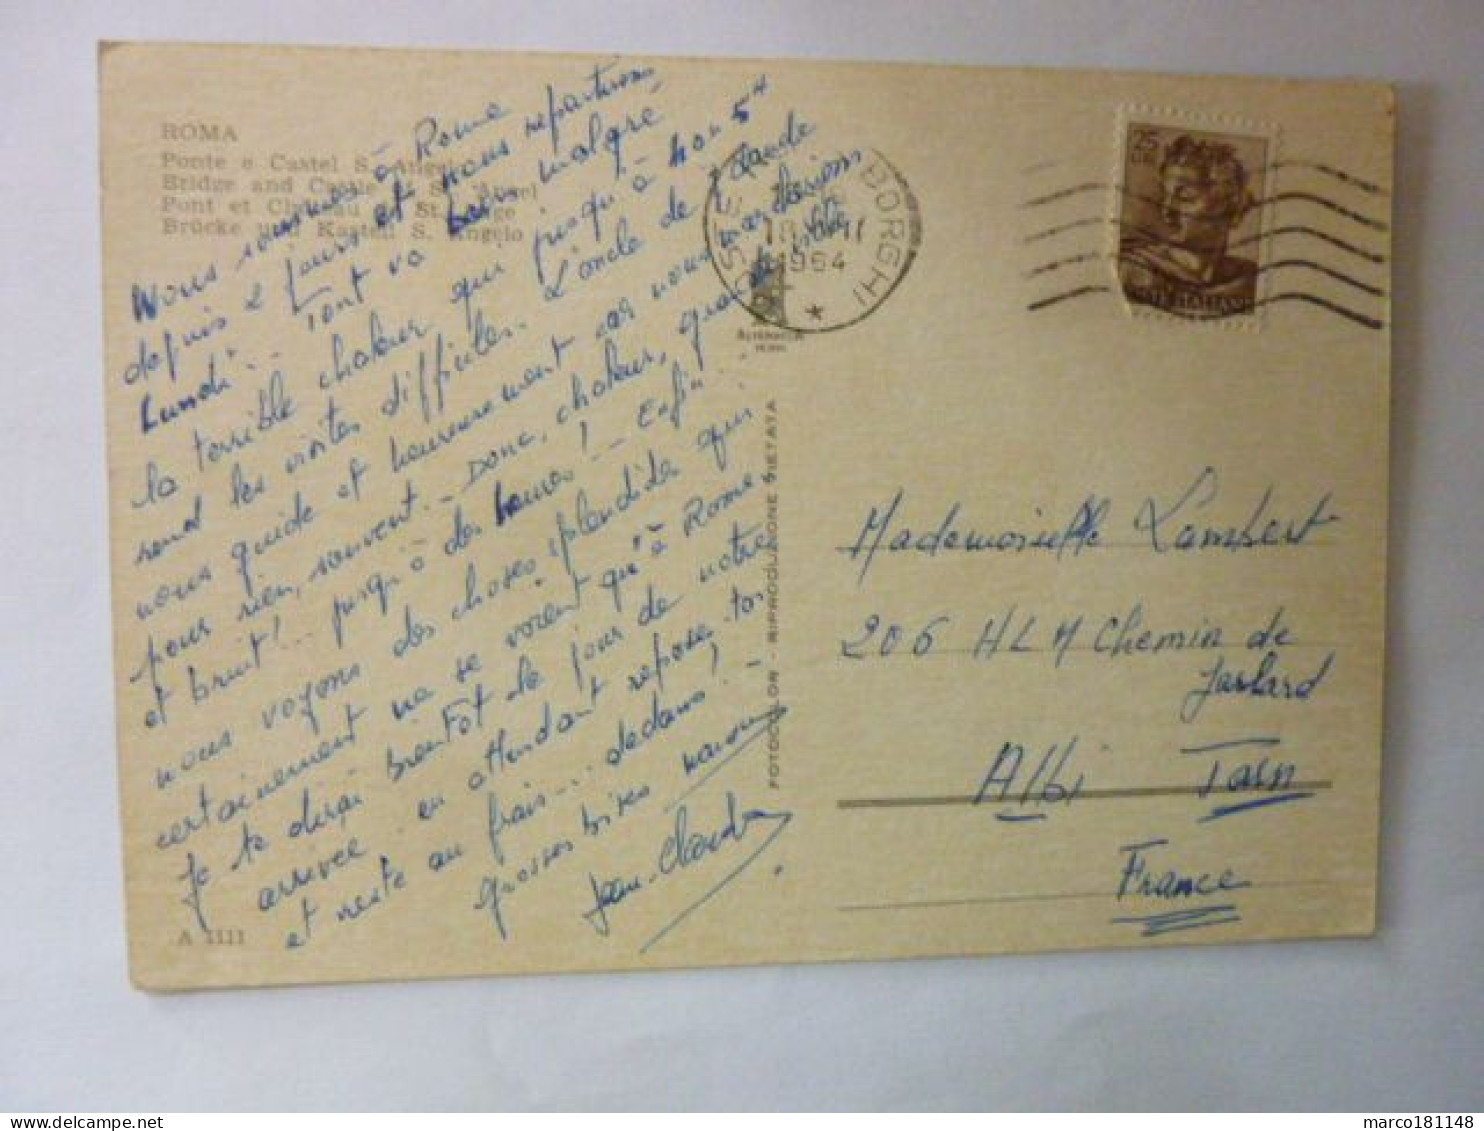 ROMA
Ponte e Castel S. Angelo
Bridge and Castle S. Angel
Pont et Château St. Ange
Brücke und Kastell S. Angelo
Nous sommes à Rome
depuis 2 jours et nous repartirons
Lundi... Tout va bien malgré
la terrible chaleur qui jusqu'à 4 ou 5 h
rend les visites difficiles. L'oncle de Claude
nous guide et heureusement car nous marcherions
pour rien, souvent.. Donc, chaleur, grande soif
et bruit!... jusqu'à des heures!.. Enfin...
nous voyons des choses splendides qui
certainement ne se voient qu'à Rome
Je te dirai bientôt le jour de notre
arrivée. en attendant repose toi
et reste au frais... dedans! -
grosses bises
Jean-Claude
A 1111
FOTOCOLOR - RIPRODUZIONE VIETATA
BORGHI
18
1964
25
LIRE
POSTE ITALIANE
Mademoiselle Lambert
206 HLM Chemin de
Jarlard
Albi Tarn
France
marco181148